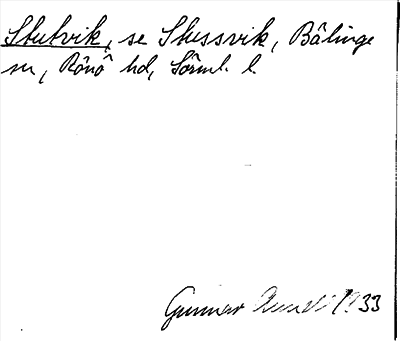 Stutvik, se Stussvik, Bälinge
sn, Rönö hd, Sörml. l.
Gunnar 1933